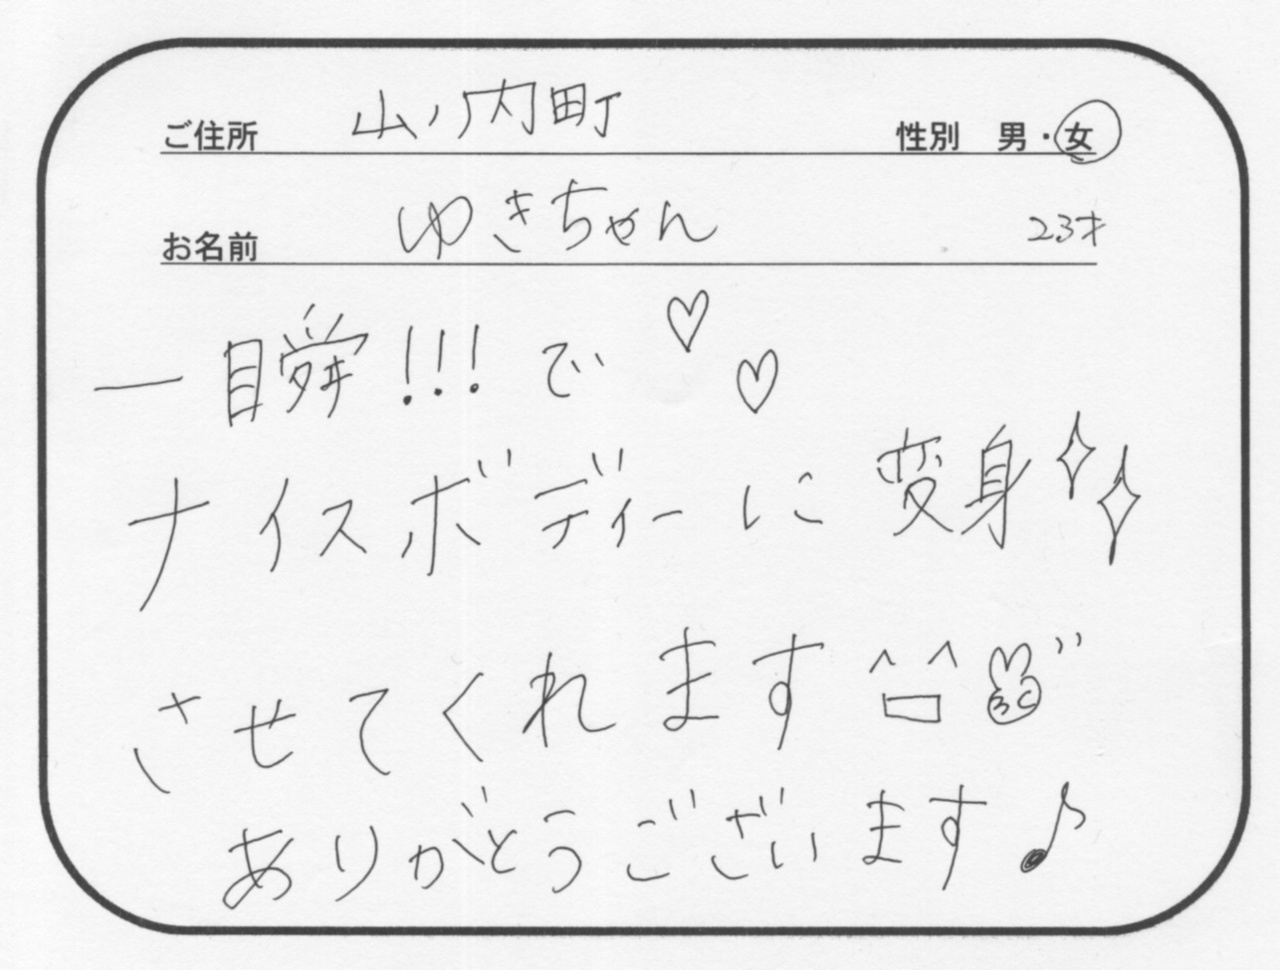 ご住所 山ノ内町 性別 男・女
お名前 ゆきちゃん 23才
一瞬!!!で♡♡
ナイスボディーに変身
させてくれます^▭^
ありがとうございます♪